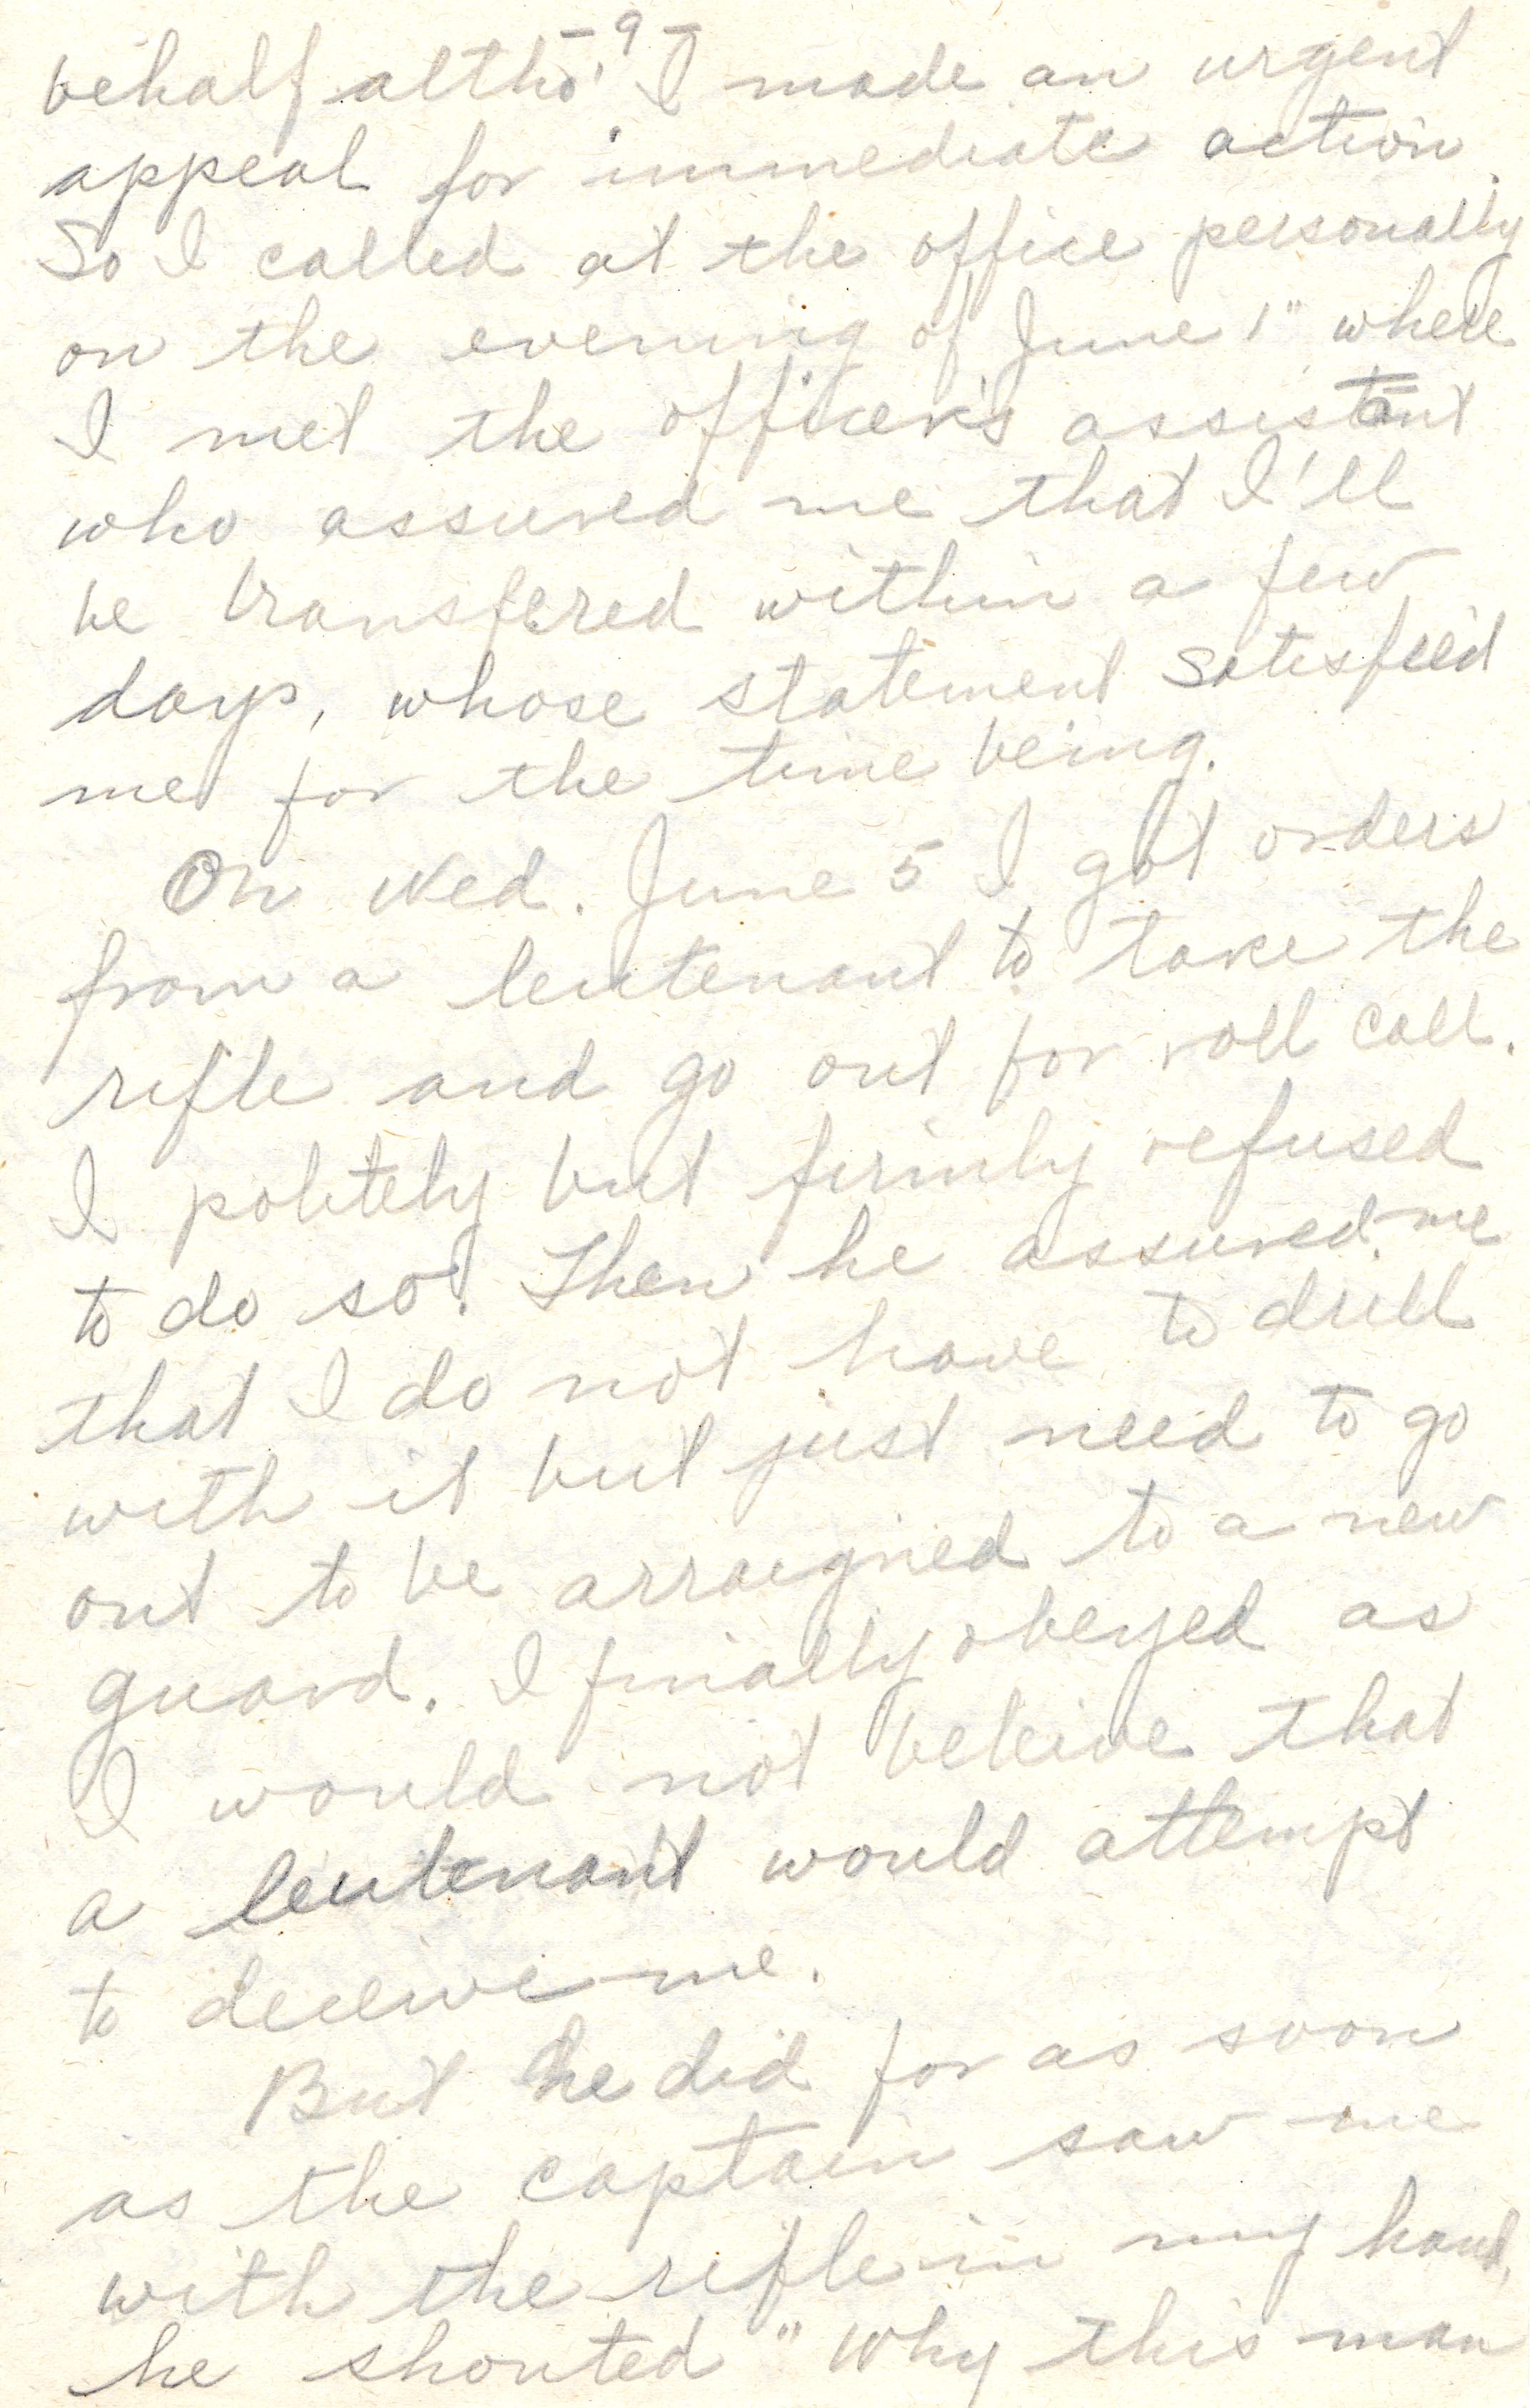 - 9 -
behalf altho' I made an urgent
appeal for immediate action.
So I called at the office personally
on the evening of June 1" where
I met the officer's assistant
who assured me that I'll
be transfered within a few
days, whose statement satisfied
me for the time being.
On Wed. June 5 I got orders
from a leutenant to take the
rifle and go out for roll call.
I politely but firmly refused
to do so. Then he assured me
that I do not have to drill
with it but just need to go
out to be arraigned to a new
guard. I finally obeyed as
I would not beleive that
a leutenant would attempt
to deceive me.
But he did for as soon
as the captain saw me
with the rifle in my hand,
he shouted "Why this man